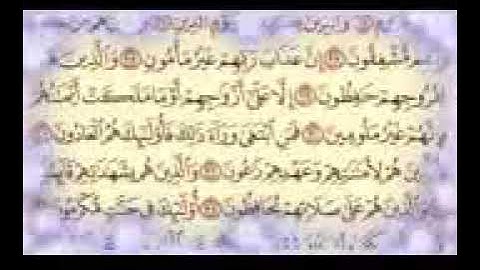 مُّشْفِقُونَ إِنَّ عَذَابَ رَبِّهِمْ غَيْرُ مَأْمُونٍ وَالَّذِينَ
لِفُرُوجِهِمْ حَٰفِظُونَ إِلَّا عَلَىٰ أَزْوَٰجِهِمْ أَوْ مَا مَلَكَتْ أَيْمَٰنُهُمْ
غَيْرُ مَلُومِينَ فَمَنِ ابْتَغَىٰ وَرَآءَ ذَٰلِكَ فَأُو۟لَٰٓئِكَ هُمُ الْعَادُونَ
هُمْ لِأَمَٰنَٰتِهِمْ وَعَهْدِهِمْ رَٰعُونَ وَالَّذِينَ هُم بِشَهَٰدَٰتِهِمْ
وَالَّذِينَ هُمْ عَلَىٰ صَلَاتِهِمْ يُحَافِظُونَ أُو۟لَٰٓئِكَ فِي جَنَّٰتٍ مُّكْرَمُونَ